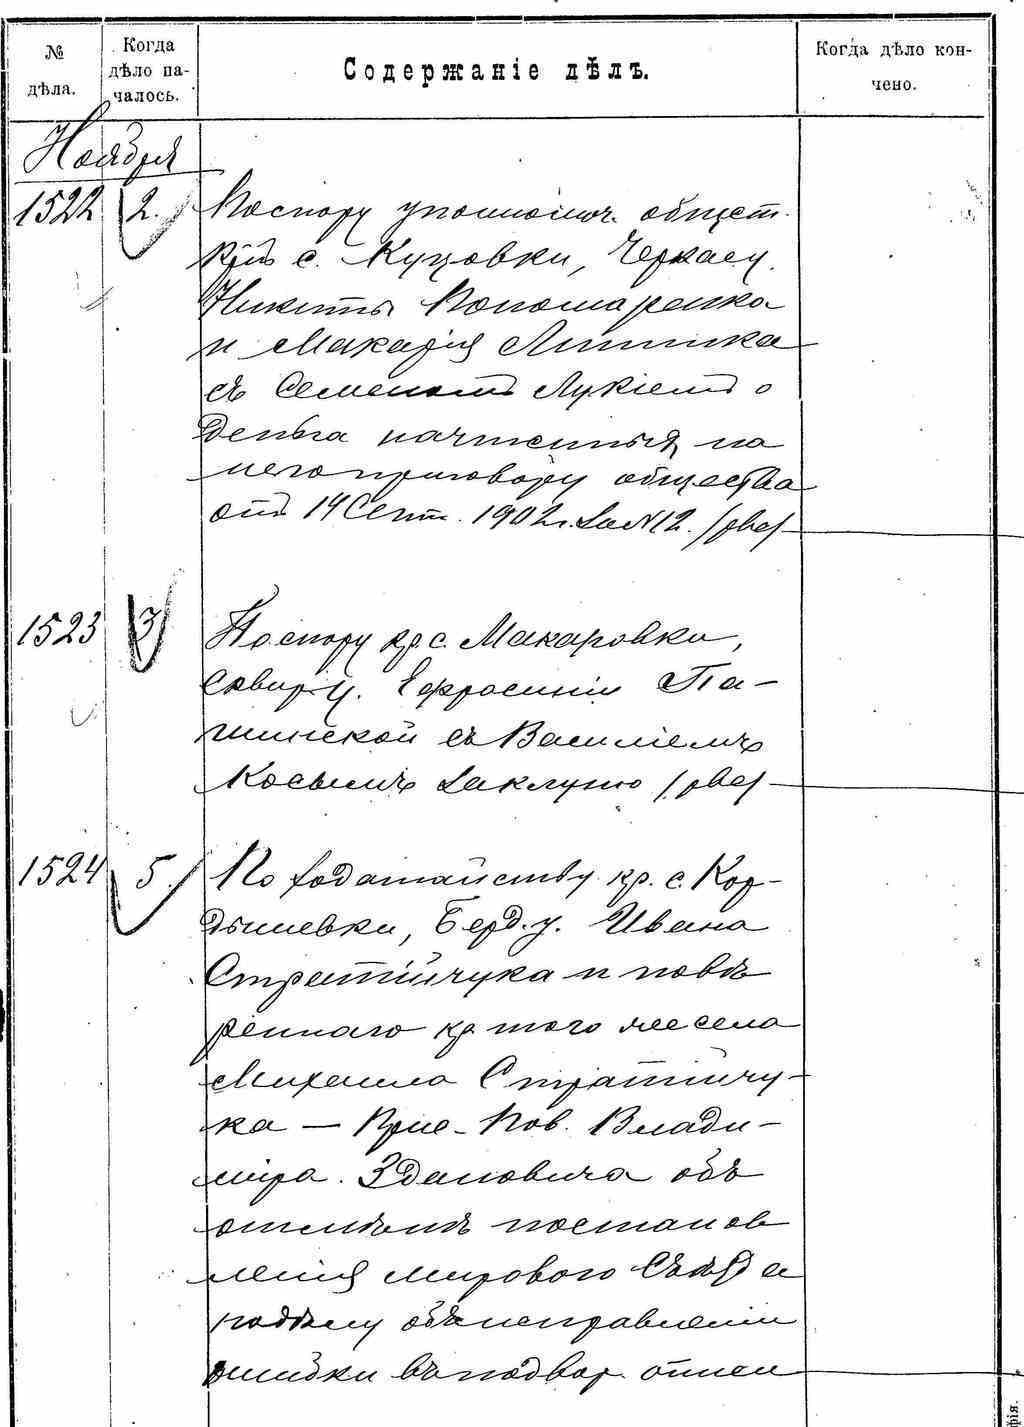 № дѣла.
Когда дѣло на-
чалось.
Содержаніе дѣлъ.
Когда дѣло кон-
чено.
Ноября
1522 2. По спору уполномоч. общест.
кр. с. Куцовки, Черкас. у.
Никиты Пономаренка
и Макарія Литвика
съ Семеномъ Лукіемъ о
деньгах начтенныя на
него приговору общества
отъ 14 Сент. 1902 г. за N12.
1523 3 По спору кр. с. Макаровки,
Сквир. у. Ефросиніи Па-
шинской съ Василіемъ
Косымъ за клуню
1524 5. По ходатайству кр. с. Кор-
дышевки, Берд. у. Ивана
Стратійчука и повѣ
реннаго кр того же села
Михаила Стратійчу-
ка — Прис. Пов. Влади-
міра. Здановича объ
отмѣнѣ постанов
ленія мирового Съѣзда
по дѣлу объ исправленіи
ошибки въ подвор. описи